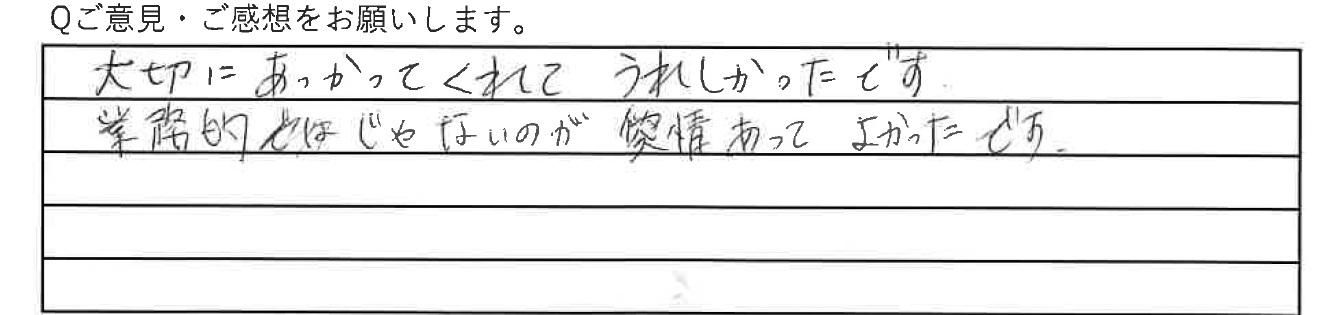 Qご意見・ご感想をお願いします。
大切にあっかってくれて うれしかったです.
業務的とはじゃないのが 愛情あって よかったです.